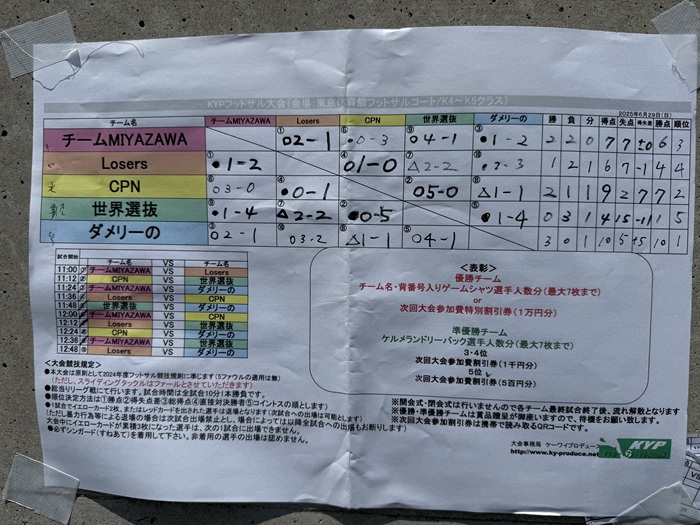 KYPフットサル大会(会場:東京体育館フットサルコート/K4～K5クラス)
2025年6月29日(日)
チーム名 チームMIYAZAWA Losers CPN 世界選抜 ダメリーの 勝 負 分 得点 失点 得失差 勝点 順位
チームMIYAZAWA ①○2-1 ⑥●0-3 ⑨○4-1 ③●1-2 2 2 0 7 7 ±0 6 3
Losers ①●1-2 ④○1-0 ⑦△2-2 ⑩●2-3 1 2 1 6 7 -1 4 4
CPN ⑥○3-0 ④●0-1 ②○5-0 ⑧△1-1 2 1 1 9 2 7 7 2
世界選抜 ⑨●1-4 ⑦△2-2 ②●0-5 ⑤●1-4 0 3 1 4 15 -11 1 5
ダメリーの ③○2-1 ⑩○3-2 ⑧△1-1 ⑤○4-1 3 0 1 10 5 +5 10 1
試合開始 チーム名 VS チーム名
11:00 チームMIYAZAWA VS Losers
11:12 CPN VS 世界選抜
11:24 チームMIYAZAWA VS ダメリーの
11:36 Losers VS CPN
11:48 世界選抜 VS ダメリーの
12:00 チームMIYAZAWA VS CPN
12:12 Losers VS 世界選抜
12:24 CPN VS ダメリーの
12:36 チームMIYAZAWA VS 世界選抜
12:48 Losers VS ダメリーの
<表彰>
優勝チーム
チーム名・背番号入りゲームシャツ選手人数分(最大7枚まで)
or
次回大会参加費特別割引券(1万円分)
準優勝チーム
ケルメランドリーバック選手人数分(最大7枚まで)
3・4位
次回大会参加費割引券(1千円分)
5位
次回大会参加費割引券(5百円分)
<大会競技規定>
●本大会は原則として2024年度フットサル競技規則に準じます(5ファウルの適用は無)
(ただし、スライディングタックルはファールとさせていただきます)
●総当りリーグ戦にて行います。試合時間は全試合10分1本勝負です。
●順位決定方法は①勝点②得失点差③総得点④直接対決勝者⑤コイントスの順とします。
●1試合でイエローカード2枚、またはレッドカードを出された選手は退場となります(次試合への出場は可能とします)
(ただし暴力行為等による退場の場合は次試合出場禁止とし、場合によっては以降全試合への出場もお断りします)
大会中にイエローカードが累積3枚になった選手は、次の1試合に出場できません。
●必ずシンガード(すねあて)を着用して下さい。非着用の選手の出場は認めません。
※開会式・閉会式は行いませんので各チーム最終試合終了後、流れ解散となります
※優勝・準優勝チームは賞品贈呈が御座いますので、待機をお願い致します。
※次回大会参加費割引券は携帯で読み取るQRコードです。
大会事務局 ケーワイプロデュース
http://www.ky-produce.net
KYP